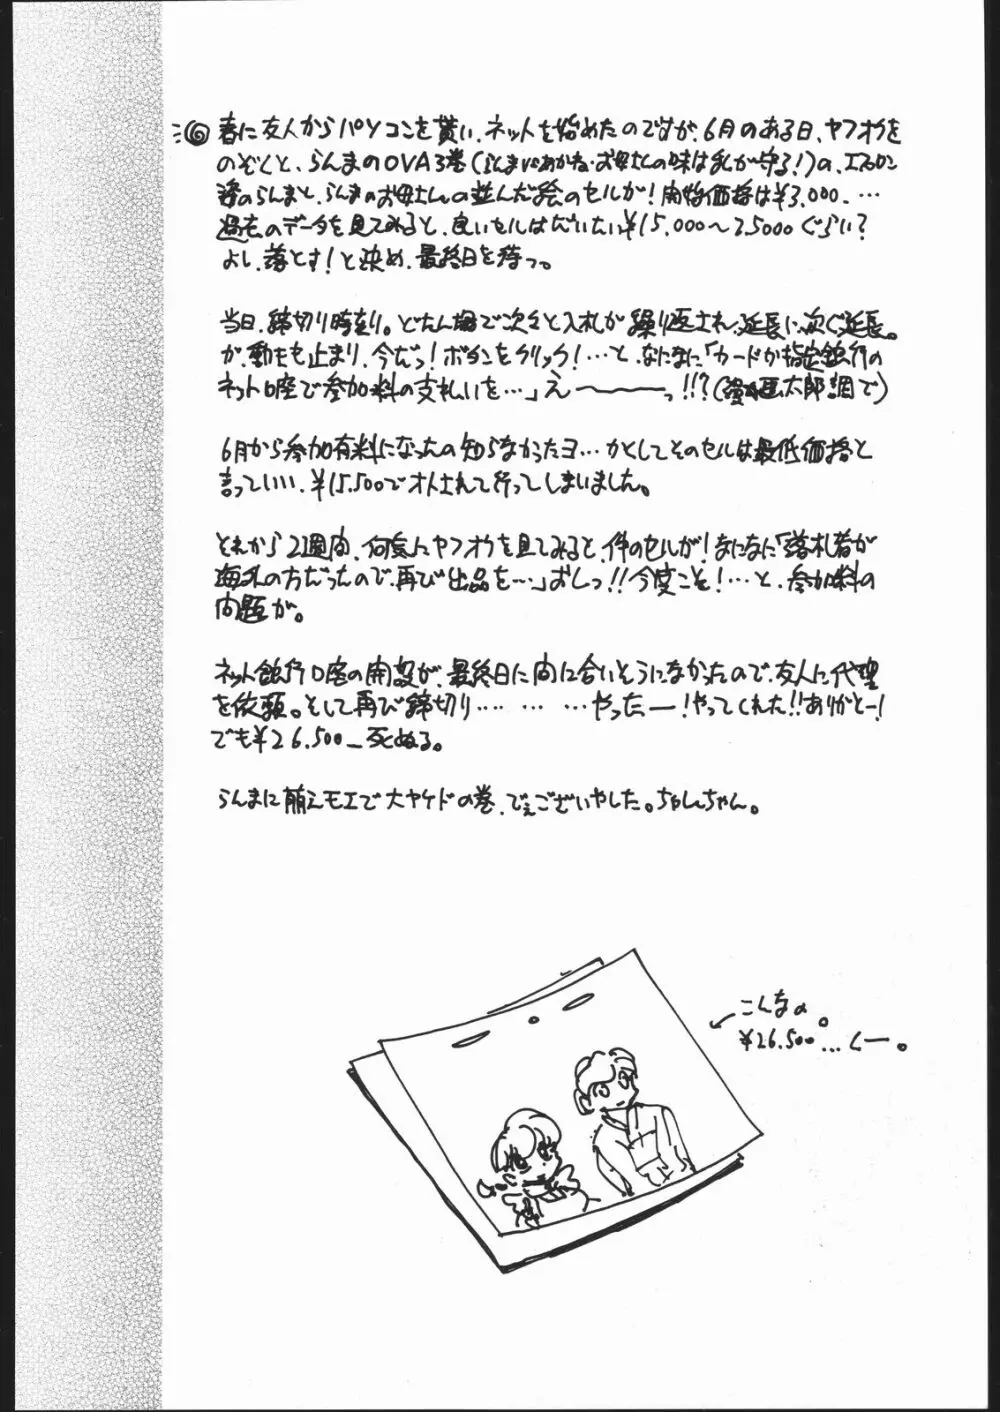 ⑥ 春に友人からパソコンを貰い、ネットを始めたのですが、6月のある日、ヤフオクを
のぞくと、らんまのOVA3巻(らんまVSあかね・お母さんの味は私が守る!)の、エプロン
姿のらんまと、らんまのお母さんの並んだ絵のセルが!開始価格は¥3,000_…
過去のデータを見てみると、良いセルはだいたい¥15,000〜25000ぐらい?
よし、落とす!と決め、最終日を待つ。
当日、締切り時刻。どたん場で次々と入札が繰り返され、延長に次ぐ延長。
が、動きも止まり、今だっ!ボタンをクリック!…と、なになに「カードか指定銀行の
ネット口座で参加料の支払いを…」え〜〜〜っ!!?(漫☆画太郎調で)
6月から参加有料になったの知らなかったヨ…かとしてそのセルは最低価格と
言っていい、¥15,500でオトされて行ってしまいました。
それから2週間、何度にヤフオクを見てみると、件のセルが!なになに「落札者が
海外の方だったので、再び出品を…」おしっ!!今度こそ!…と、参加料の
問題が。
ネット銀行口座の開設が、最終日に間に合いそうになかったので、友人に代理
を依頼。そして再び締切り…… … …やったー!やってくれた!!ありがとー!
でも¥26,500_死ぬる。
らんまに萠えモエで大ヤケドの巻、でぇございやした。ちゃんちゃん。
こんなの。
¥26,500…くー。